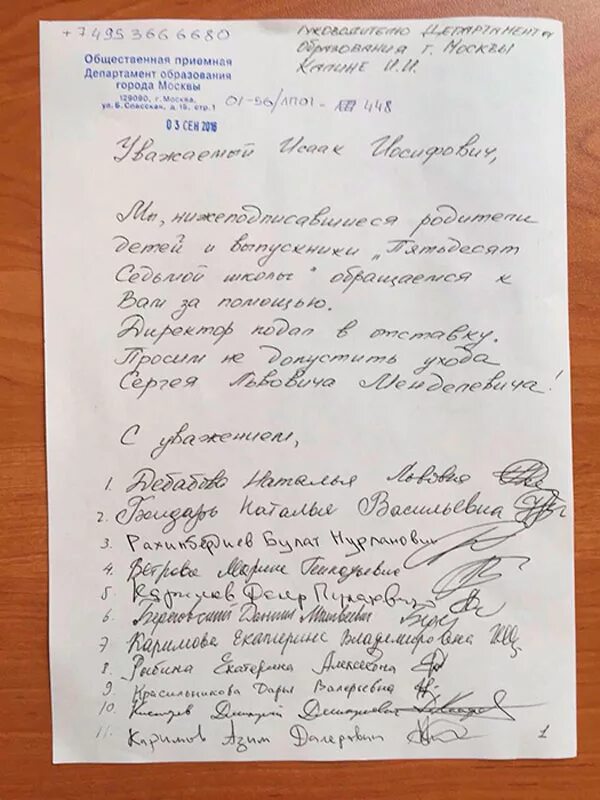 +7 495 366 6680
Руководителю Департамента
образования г. Москвы
Калине И.И.
Общественная приемная
Департамент образования
города Москвы
129090, г. Москва,
ул. Б. Спасская, д. 15, стр. 1
01-56/ЛП01- 448
03 СЕН 2016
Уважаемый Исаак Иосифович,
Мы, нижеподписавшиеся родители
детей и выпускники „Пятьдесят
Седьмой школы" обращаемся к
Вам за помощью.
Директор подал в отставку.
Просим не допустить ухода
Сергея Львовича Менделевича!
С уважением,
1. Дебабова Наталья Львовна
2. Бондарь Наталья Васильевна
3. Рахимбердиев Булат Нурланович
4. Ветрова Марина Геннадьевна
5. Каримов Далер
6. Береговский Даниил
7. Каримова Екатерина Владимировна
8. Рыбина Екатерина Алексеевна
9. Красильникова Дарья Валериевна
10. Дмитрий Дмитриевич
11. Каримов Азим Далерович
1